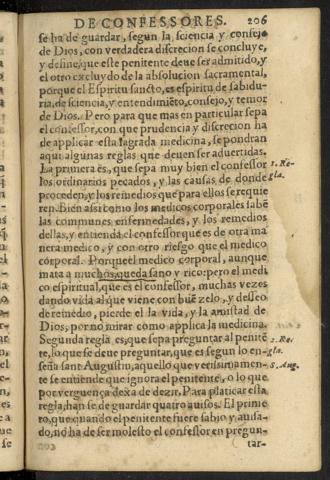 DE CONFESSORES. 206
se ha de guardar, segun la sciencia y consejo
de Dios, con verdadera discrecion se concluye,
y define, que este penitente deue ser admitido, y
el otro excluydo de la absolucion sacramental,
porque el Espiritu sancto, es espiritu de sabidu-
ria, de sciencia, y entendimiẽto, consejo, y temor
de Dios. Pero para que mas en particular sepa
el confessor, con que prudencia y discrecion ha
de applicar esta sagrada medicina, se pondran
aqui algunas reglas que deuen ser aduertidas.
La primera es, que sepa muy bien el confessor 1. Re-
los ordinarios pecados, y las causas de donde gla.
proceden, y los remedios que para ellos se requie
ren. bien assi como los medicos corporales sabẽ
las communes enfermedades, y los remedios
dellas, y entienda el confessor que es de otra ma
nera medico, y con otro riesgo que el medico
corporal. Porque el medico corporal, aunque
mata a muchos, queda sano y rico: pero el medi
co espiritual, que es el confessor, muchas vezes
dando vida al que viene con buẽ zelo, y desseo
de remedio, pierde el la vida, y la amistad de
Dios, por no mirar como applica la medicina.
Segunda regla es, que sepa preguntar al penitẽ 2. Re-
te, lo que se deue preguntar, que es segun lo en- gla.
seña sant Augustin, aquello que verissimamen- S. Aug.
te se entiende que ignora el penitente, o lo que
por verguença dexa de dezir. Para platicar esta
regla, han se de guardar quatro auisos. El prime
ro, que quando el penitente fuere sabio y auisa-
do, no ha de ser molesto el confessor en pregun-
tar-